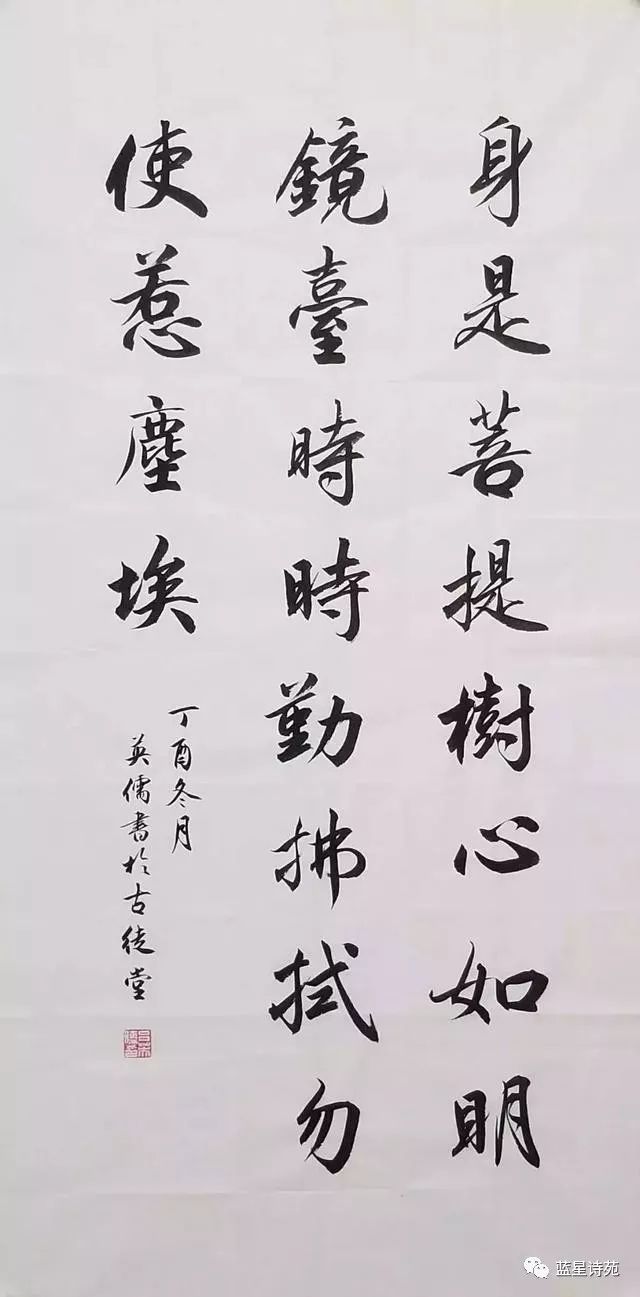 身是菩提樹心如明
鏡臺時時勤拂拭勿
使惹塵埃
丁酉冬月
英儒書於古徒堂
蓝星诗苑